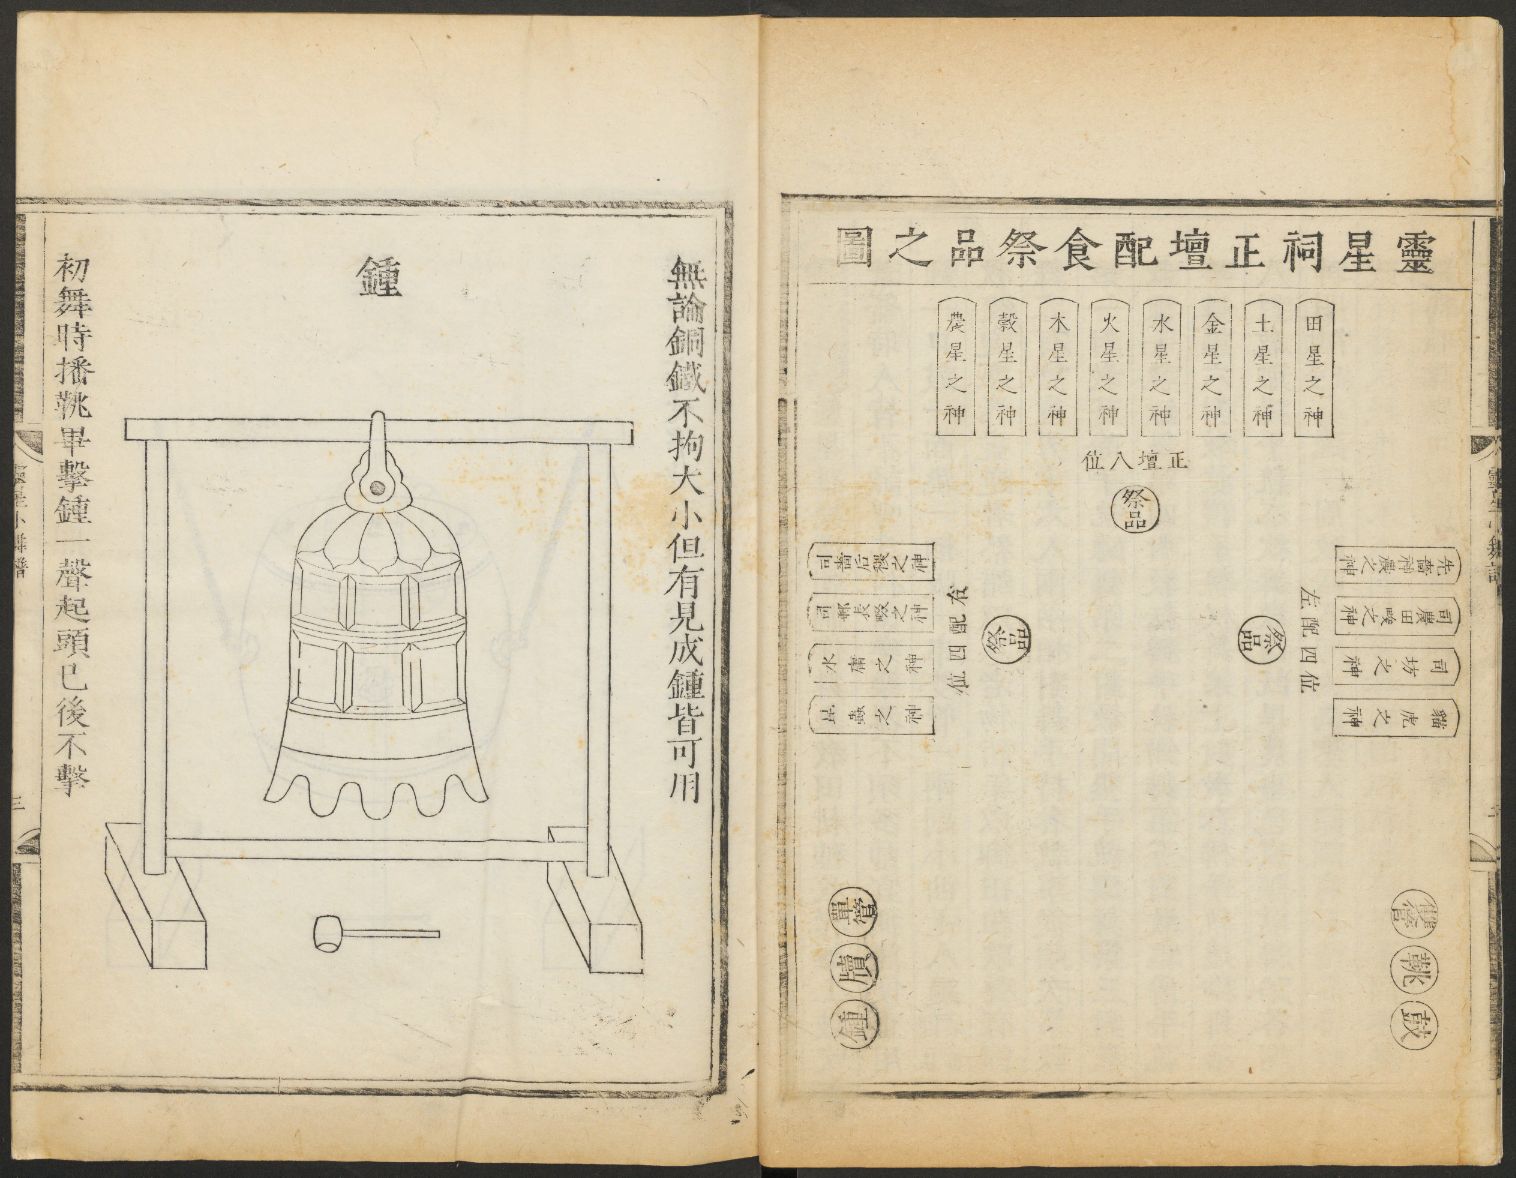 靈星祠正壇配食祭品之圖
田星之神
土星之神
金星之神
水星之神
火星之神
木星之神
穀星之神
農星之神
正壇八位
祭品
左配四位
祭品
先嗇神農之神
司農田畯之神
司坊之神
貓虎之神
右配四位
祭品
司嗇后稷之神
司郵長畷之神
水庸之神
昆蟲之神
雙管
鞉
鼓
單管
牘
鍾
無論銅鐵不拘大小但有見成鍾皆可用
鍾
初舞時播鞉畢擊鍾一聲起頭已後不擊
靈星小舞譜
三